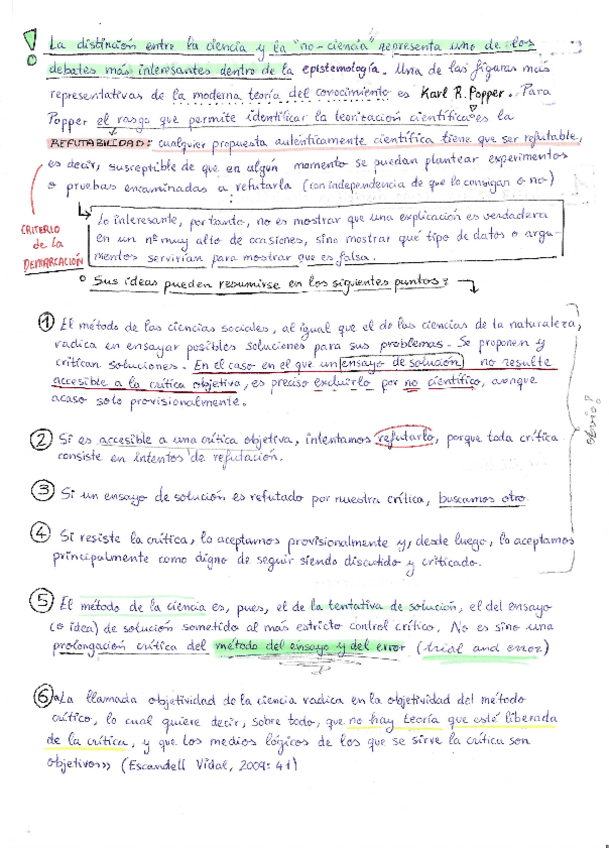 La distinción entre la ciencia y la "no-ciencia" representa uno de los
debates más interesantes dentro de la epistemología. Una de las figuras más
representativas de la moderna teoría del conocimiento es Karl R. Popper. Para
Popper el rasgo que permite identificar la teorización científica es la
REFUTABILIDAD: cualquier propuesta auténticamente científica tiene que ser refutable,
es decir, susceptible de que en algún momento se puedan plantear experimentos
o pruebas encaminadas a refutarla (con independencia de que lo consigan o no)
CRITERIO
de la
DEMARCACIÓN
Lo interesante, por tanto, no es mostrar que una explicación es verdadera
en un nº muy alto de ocasiones, sino mostrar qué tipo de datos o argu-
mentos servirían para mostrar que es falsa.
Sus ideas pueden resumirse en los siguientes puntos:
① El método de las ciencias sociales, al igual que el de las ciencias de la naturaleza,
radica en ensayar posibles soluciones para sus problemas. Se proponen y
critican soluciones. En el caso en el que un ensayo de solución no resulte
accesible a la crítica objetiva, es preciso excluirlo por no científico, aunque
acaso solo provisionalmente.
② Si es accesible a una crítica objetiva, intentamos refutarlo, porque toda crítica
consiste en intentos de refutación.
③ Si un ensayo de solución es refutado por nuestra crítica, buscamos otro.
④ Si resiste la crítica, lo aceptamos provisionalmente y, desde luego, lo aceptamos
principalmente como digno de seguir siendo discutido y criticado.
⑤ El método de la ciencia es, pues, el de la tentativa de solución, el del ensayo
(o idea) de solución sometido al más estricto control crítico. No es sino una
prolongación crítica del método del ensayo y del error (trial and error)
⑥ «La llamada objetividad de la ciencia radica en la objetividad del método
crítico, lo cual quiere decir, sobre todo, que no hay teoría que esté liberada
de la crítica, y que los medios lógicos de los que se sirve la crítica son
objetivos» (Escandell Vidal, 2009: 41)